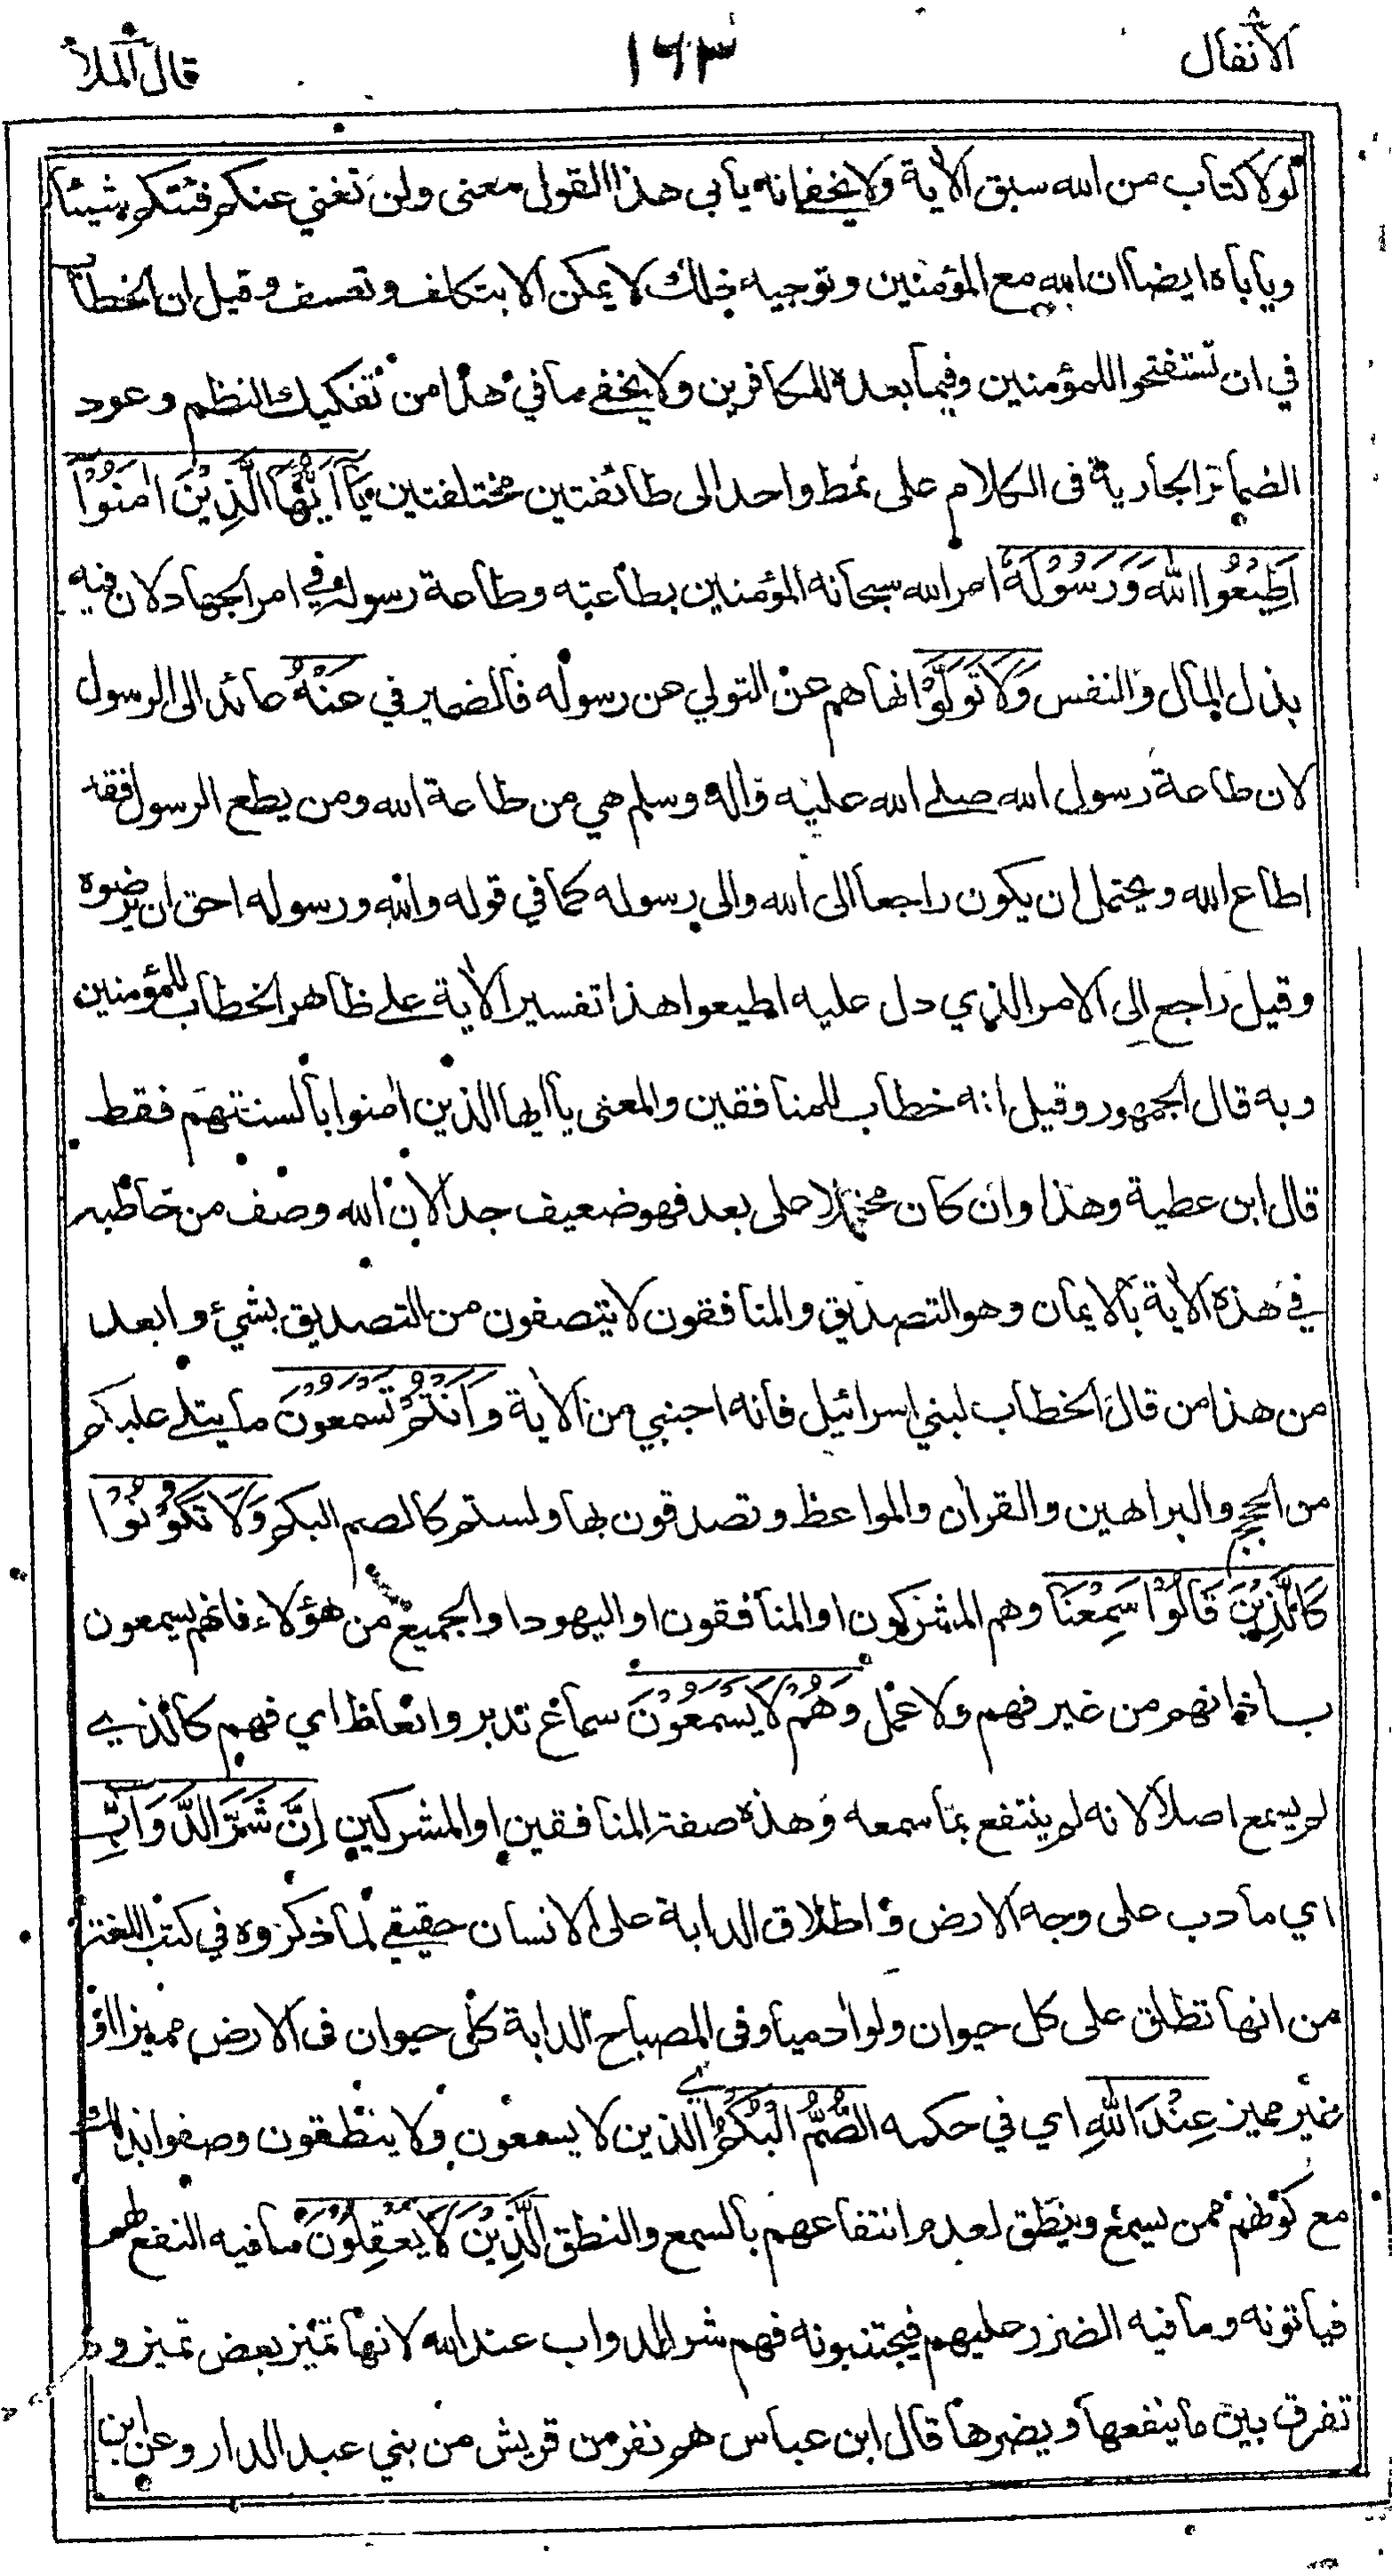 الأنفال ١٦٣ قال الملأ
لولا كتاب من الله سبق الأية ولا يخفى انه يأبى هذا القول معنى ولن تغني عنكم فئتكم شيئا
ويأباه ايضا ان الله مع المؤمنين وتوجيه ذلك لا يمكن الا بتكلف وتعسف وقيل ان الخطاب
في ان تستفتحوا للمؤمنين وفيما بعده للكافرين ولا يخفى ما في هذا من تفكيك النظم وعود
الضمائر الجارية فى الكلام على نمط واحد الى طائفتين مختلفتين يَآ أَيُّهَا الَّذِيْنَ اٰمَنُوْا
اَطِيْعُوا اللهَ وَرَسُوْلَهٗ امر الله سبحانه المؤمنين بطاعته وطاعة رسوله في امر الجهاد لان فيه
بذل المال والنفس وَلَا تَوَلَّوْا نهاهم عن التولي عن رسوله فالضمير في عَنْهُ عائد الى الرسول
لان طاعة رسول الله صلى الله عليه واٰله وسلم هي من طاعة الله ومن يطع الرسول فقد
اطاع الله ويحتمل ان يكون راجعا الى الله والى رسوله كما في قوله والله ورسوله احق ان يرضوه
وقيل راجع الى الامر الذي دل عليه اطيعوا هذا تفسير الأية على ظاهر الخطاب للمؤمنين
وبه قال الجمهور وقيل انه خطاب للمنافقين والمعنى يا ايها الذين اٰمنوا بألسنتهم فقط
قال ابن عطية وهذا وان كان محتملا على بعد فهو ضعيف جدا لان الله وصف من خاطبه
في هذه الأية بالايمان وهو التصديق والمنافقون لا يتصفون من التصديق بشيء وابعد
من هذا من قال الخطاب لبني اسرائيل فانه اجنبي من الأية وَاَنْتُمْ تَسْمَعُوْنَ ما يتلى عليكم
من الحجج والبراهين والقراٰن والمواعظ وتصدقون بها ولستم كالصم البكم وَلَا تَكُوْنُوْا
كَالَّذِيْنَ قَالُوْا سَمِعْنَا وهم المشركون او المنافقون او اليهود او الجميع من هؤلاء فانهم يسمعون
باٰذانهم من غير فهم ولا عمل وَهُمْ لَا يَسْمَعُوْنَ سماع تدبر واتعاظ اي فهم كالذي
لم يسمع اصلا لانه لم ينتفع بما سمعه وهذه صفة المنافقين او المشركين اِنَّ شَرَّ الدَّوَآبِّ
اي ما دب على وجه الارض واطلاق الدابة على الانسان حقيقي لما ذكروه في كتب اللغة
من انها تطلق على كل حيوان ولو اٰدميا وفى المصباح الدابة كل حيوان فى الارض مميزا او
غير مميز عِنْدَ اللهِ اي في حكمه الصُّمُّ الْبُكْمُ اي الذين لا يسمعون ولا ينطقون وصفوا بذلك
مع كونهم ممن يسمع وينطق لعدم انتفاعهم بالسمع والنطق الَّذِيْنَ لَا يَعْقِلُوْنَ ما فيه النفع لهم
فيأتونه وما فيه الضرر عليهم فيجتنبونه فهم شر الدواب عند الله لانها تميز بعض تميز و
تفرق بين ما ينفعها ويضرها قال ابن عباس هم نفر من قريش من بني عبد الدار وعن ابن